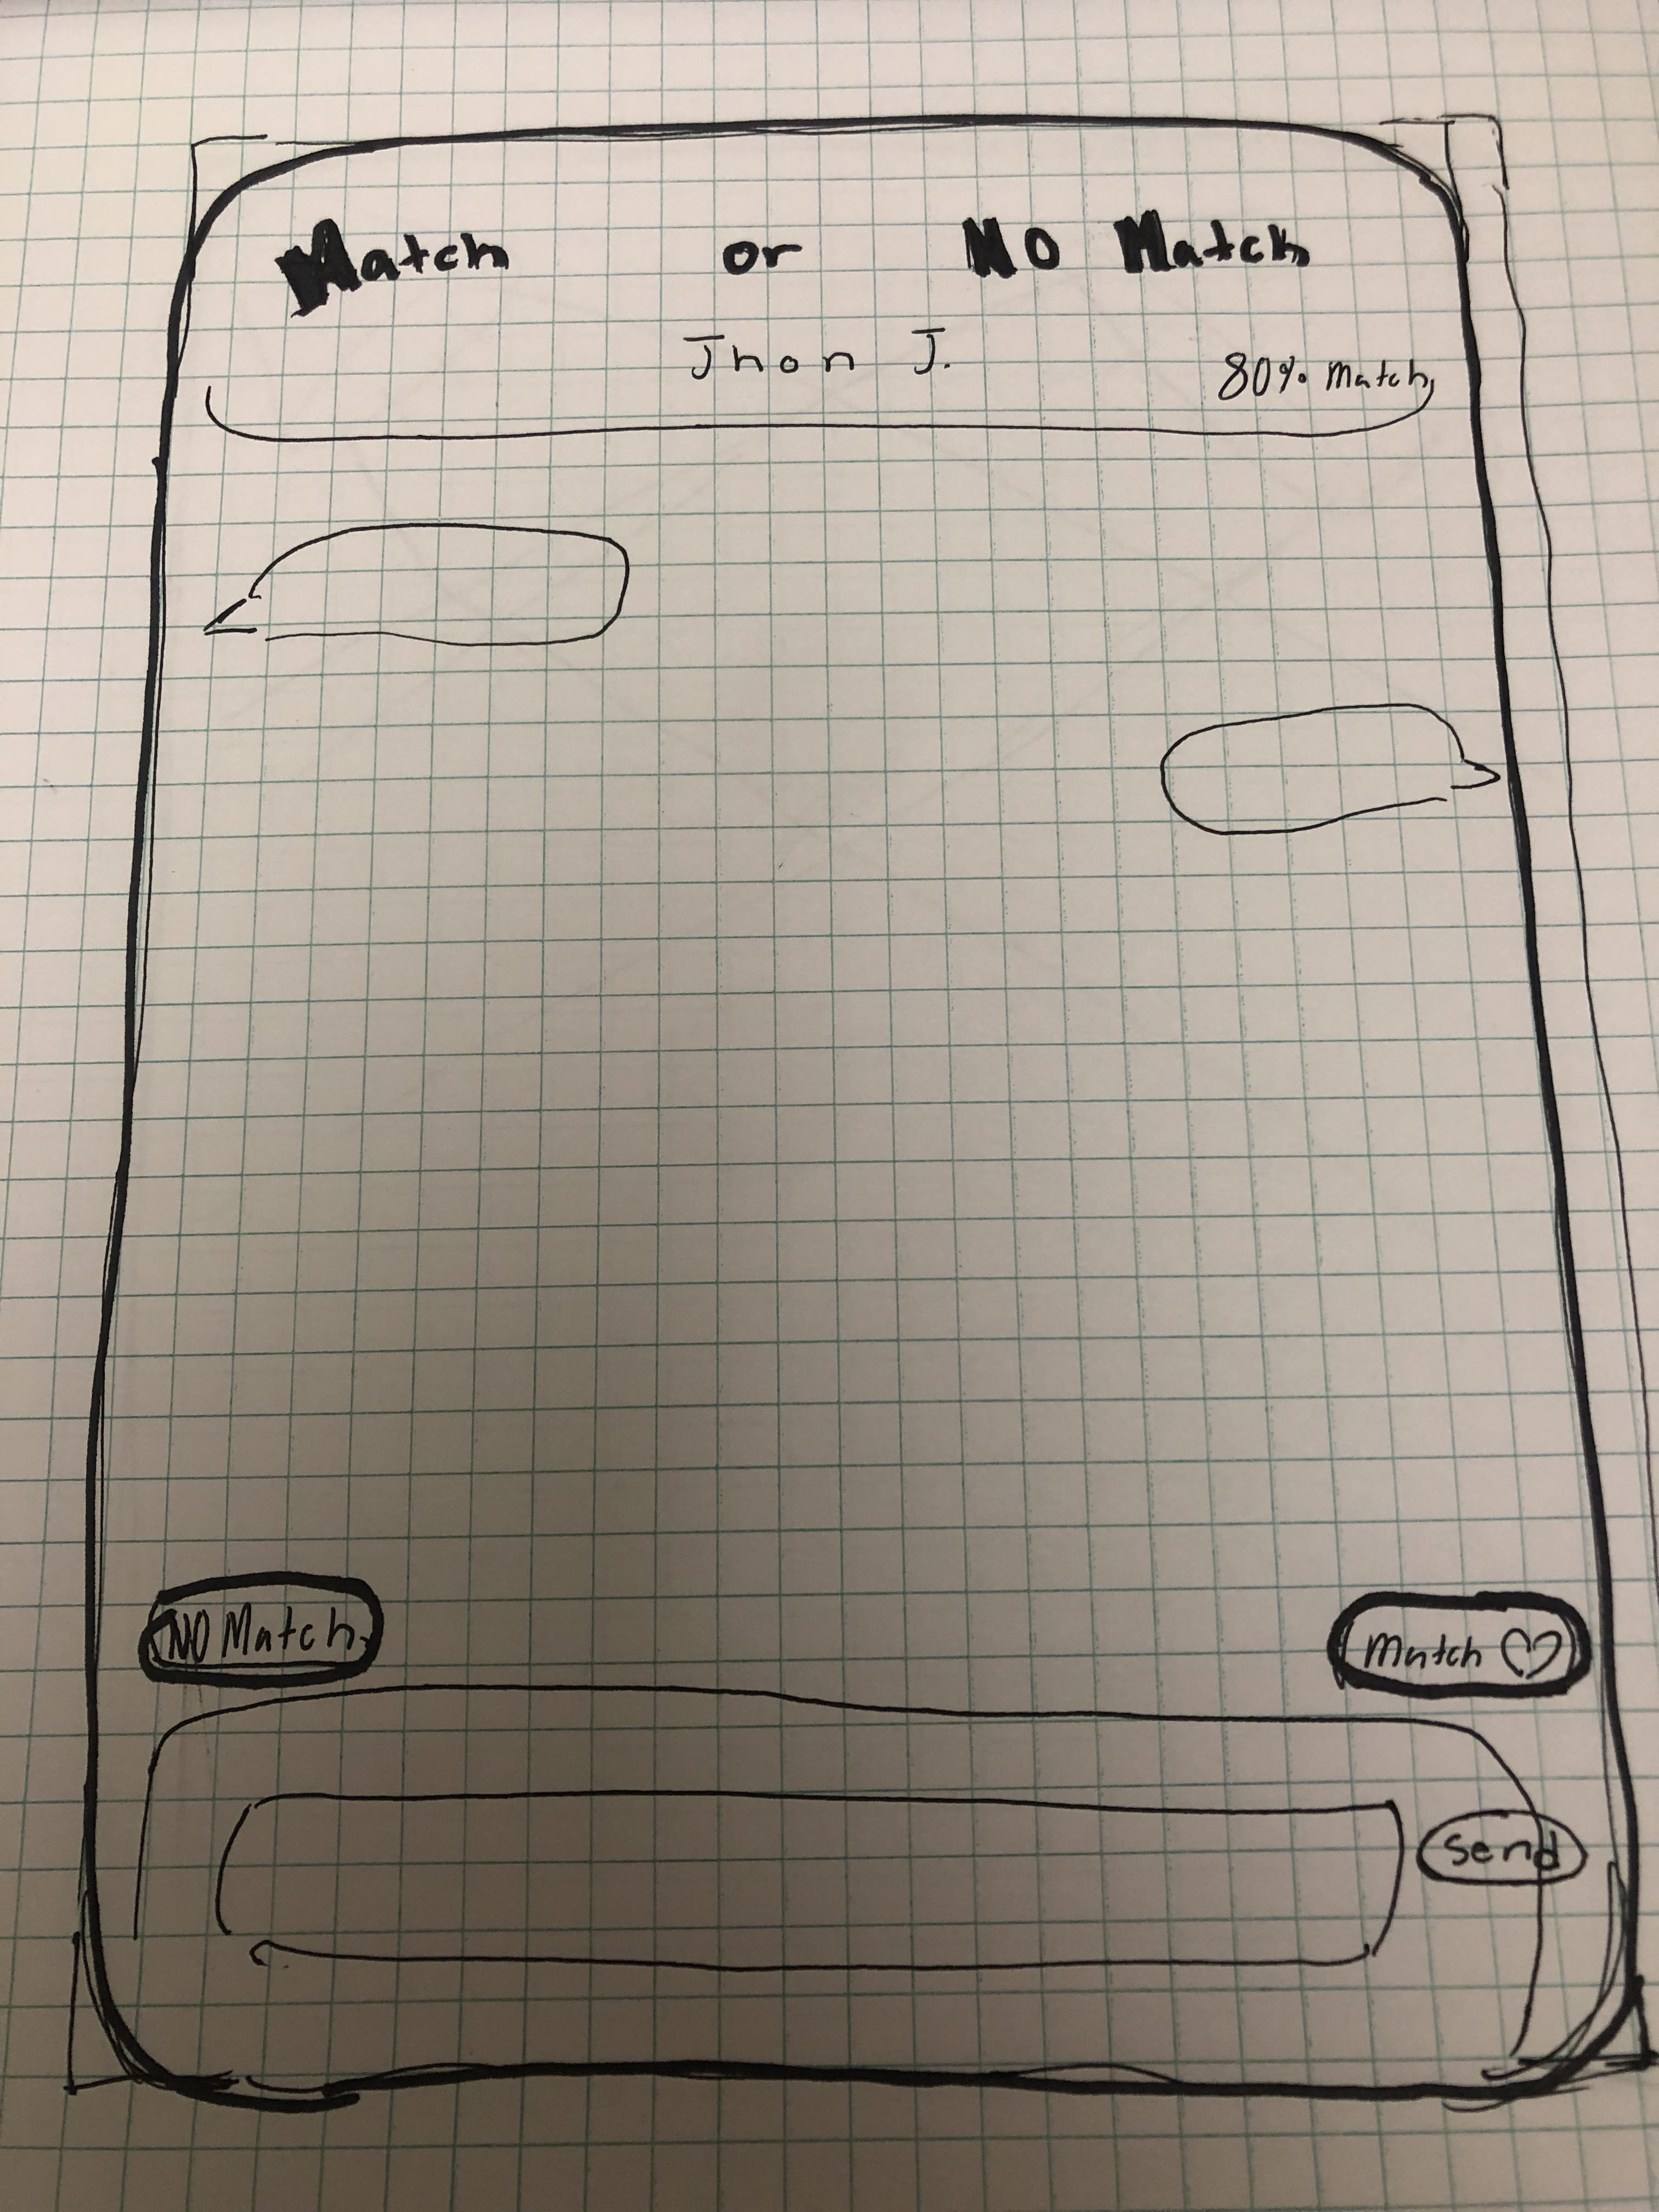 Match or No Match
Jhon J.
80% Match
NO Match
Match ♡
Send